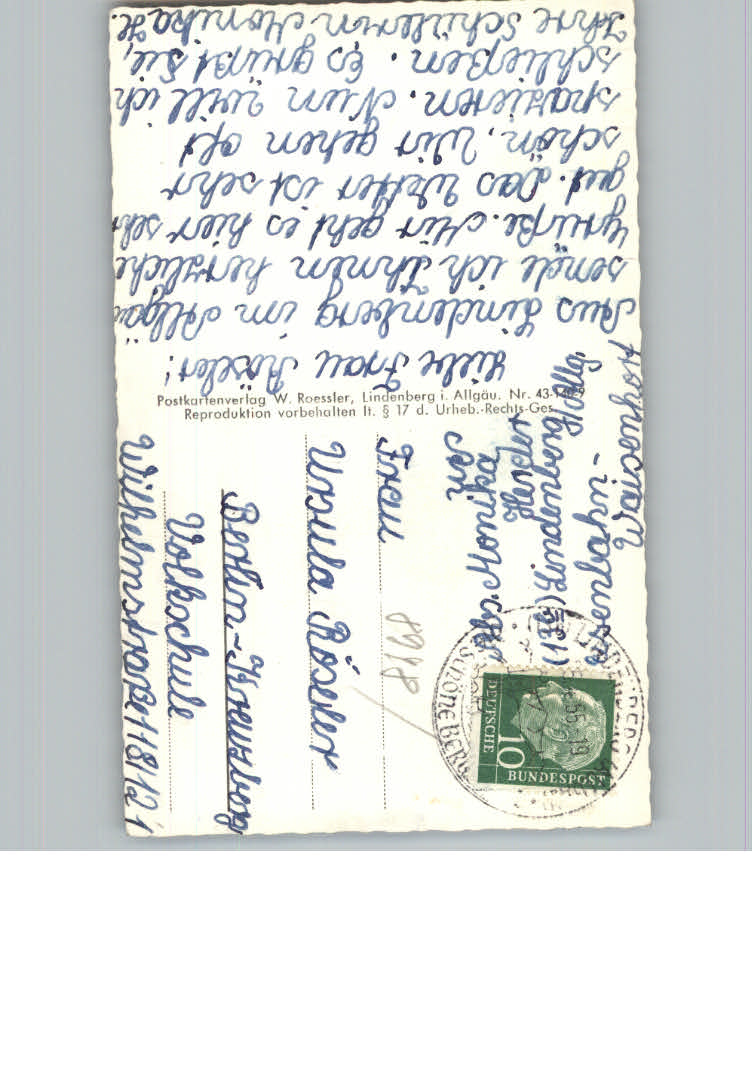 Liebe Frau Röseler!
Aus Lindenberg im Allgäu
sende ich Ihnen herzliche
Grüße. Mir geht es hier sehr
gut. Das Wetter ist sehr
schön. Wir gehen oft
spazieren. Nun will ich
schließen. Es grüßt Sie,
Ihre Schülerin Monika H.
Postkartenverlag W. Roessler, Lindenberg i. Allgäu. Nr. 43-140-9
Reproduktion vorbehalten lt. § 17 d. Urheb.-Rechts-Ges.
Frau
Ursula Röseler
Berlin-Kreuzberg
Volkschule
Wilhelmstraße 118/121
Abs. Monika
(13b) Lindenberg/Allg.
8918
10
DEUTSCHE
BUNDESPOST
LINDENBERG
SCHÖNE BERG